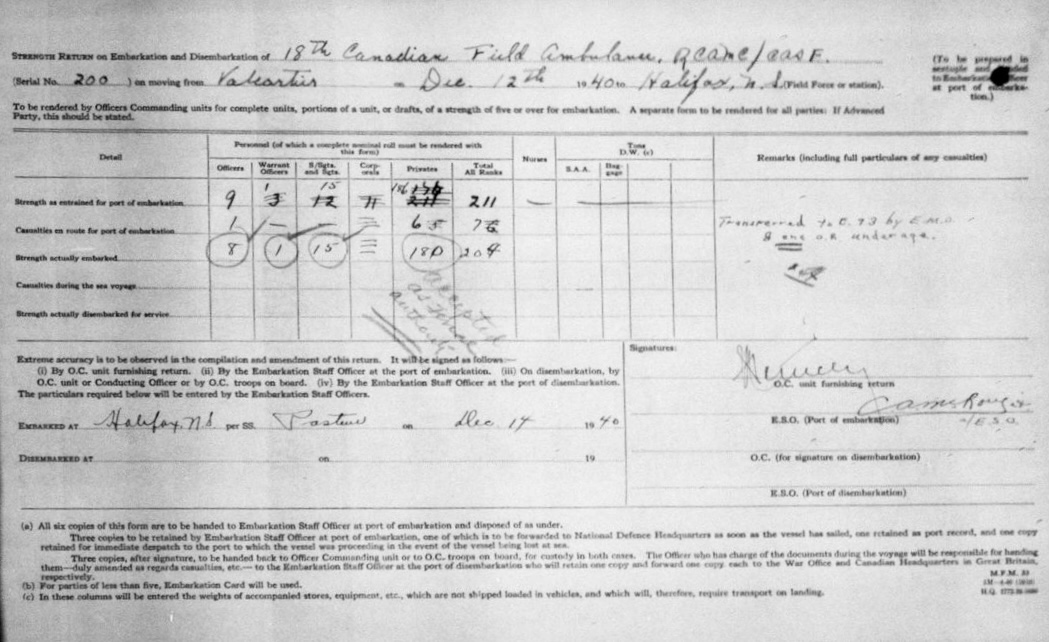 STRENGTH RETURN on Embarkation and Disembarkation of 18th Canadian Field Ambulance, RCAMC/CASF.
(Serial No. 200 ) on moving from Valcartier on Dec. 12th 1940 to Halifax, N.S (Field Force or station).
(To be prepared in and to Embarkation at port of embarkation.)
To be rendered by Officers Commanding units for complete units, portions of a unit, or drafts, of a strength of five or over for embarkation. A separate form to be rendered for all parties: If Advanced
Party, this should be stated.
Detail
Personnel (of which a complete nominal roll must be rendered with this form)
Officers Warrant Officers S/Sgts. and Sgts. Corporals Privates Total All Ranks
Nurses
Tons D.W. (c)
S.A.A. Baggage
Remarks (including full particulars of any casualties)
1 15 186
Strength as entrained for port of embarkation 9 3 12 11 211 211 —
Casualties en route for port of embarkation 1 — 6 5 7 6
Transferred to E. 93 by E.M.O.
& one O.R underage.
Strength actually embarked 8 1 15 180 204
Casualties during the sea voyage
Strength actually disembarked for service
accepted
as
authority
Extreme accuracy is to be observed in the compilation and amendment of this return. It will be signed as follows:—
(i) By O.C. unit furnishing return. (ii) By the Embarkation Staff Officer at the port of embarkation. (iii) On disembarkation, by
O.C. unit or Conducting Officer or by O.C. troops on board. (iv) By the Embarkation Staff Officer at the port of disembarkation.
The particulars required below will be entered by the Embarkation Staff Officers.
EMBARKED AT Halifax, N.S per SS. Pasteur on Dec 14 1940
DISEMBARKED AT on 19
Signatures:
O.C. unit furnishing return
E.S.O. (Port of embarkation)
E.S.O.
O.C. (for signature on disembarkation)
E.S.O. (Port of disembarkation)
(a) All six copies of this form are to be handed to Embarkation Staff Officer at port of embarkation and disposed of as under.
Three copies to be retained by Embarkation Staff Officer at port of embarkation, one of which is to be forwarded to National Defence Headquarters as soon as the vessel has sailed, one retained as port record, and one copy
retained for immediate despatch to the port to which the vessel was proceeding in the event of the vessel being lost at sea.
Three copies, after signature, to be handed back to Officer Commanding unit or to O.C. troops on board, for custody in both cases. The Officer who has charge of the documents during the voyage will be responsible for handing
them—duly amended as regards casualties, etc.— to the Embarkation Staff Officer at the port of disembarkation who will retain one copy and forward one copy each to the War Office and Canadian Headquarters in Great Britain,
respectively.
(b) For parties of less than five, Embarkation Card will be used.
(c) In these columns will be entered the weights of accompanied stores, equipment, etc., which are not shipped loaded in vehicles, and which will, therefore, require transport on landing.
M.F.M. 33